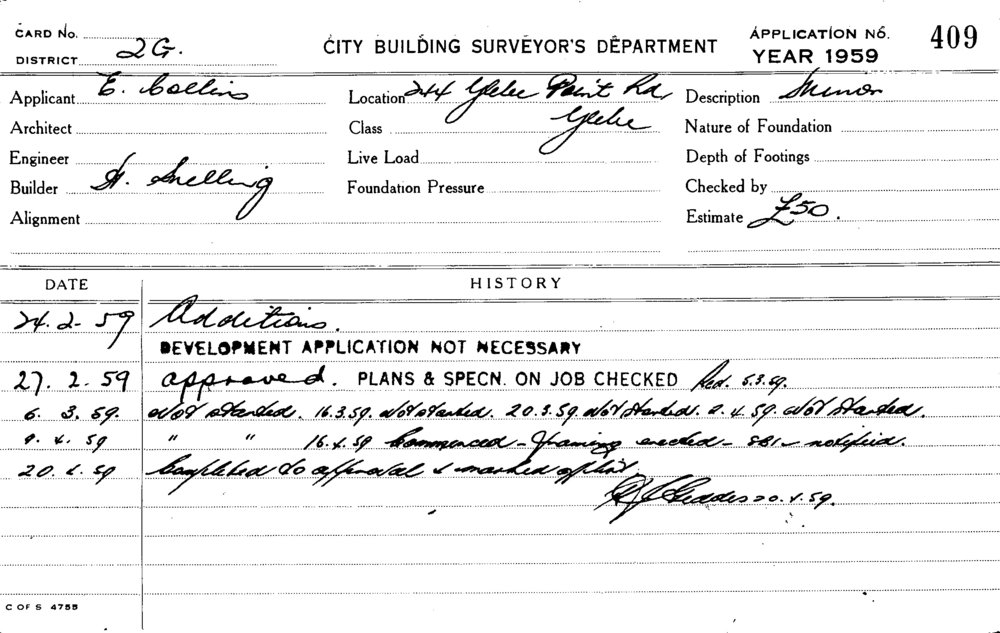 CARD No.
DISTRICT 2G.
CITY BUILDING SURVEYOR'S DEPARTMENT
APPLICATION No. 409
YEAR 1959
Applicant E. Collins Location 244 Glebe Point Rd, Description Minor
Architect Class Glebe Nature of Foundation
Engineer Live Load Depth of Footings
Builder H. Snelling Foundation Pressure Checked by
Alignment Estimate £50.
DATE HISTORY
24.2.59 Additions.
DEVELOPMENT APPLICATION NOT NECESSARY
27.2.59 approved. PLANS & SPECN. ON JOB CHECKED 5.3.59.
6.3.59. Not started. 16.3.59. Not started. 20.3.59. Not started. 2.4.59. Not started.
9.4.59 " " 16.4.59 Commenced - framing erected - notified.
20.4.59 Completed to approval & marked off list
Geddes 20.4.59.
C OF S 4755